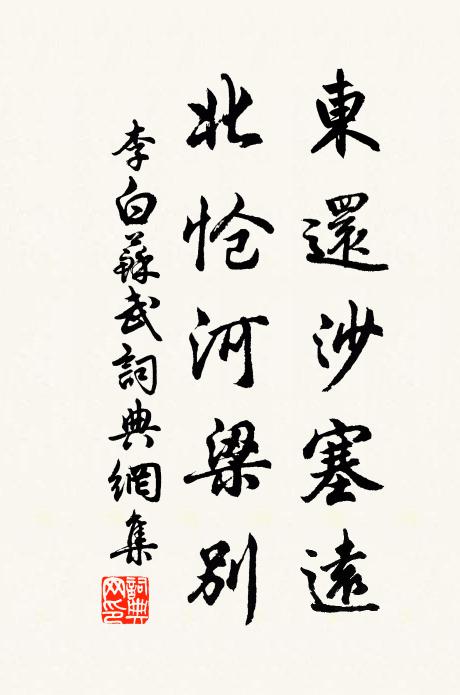 東還沙塞遠
北怆河梁别
李白蘇武詞典網集
詞典网印